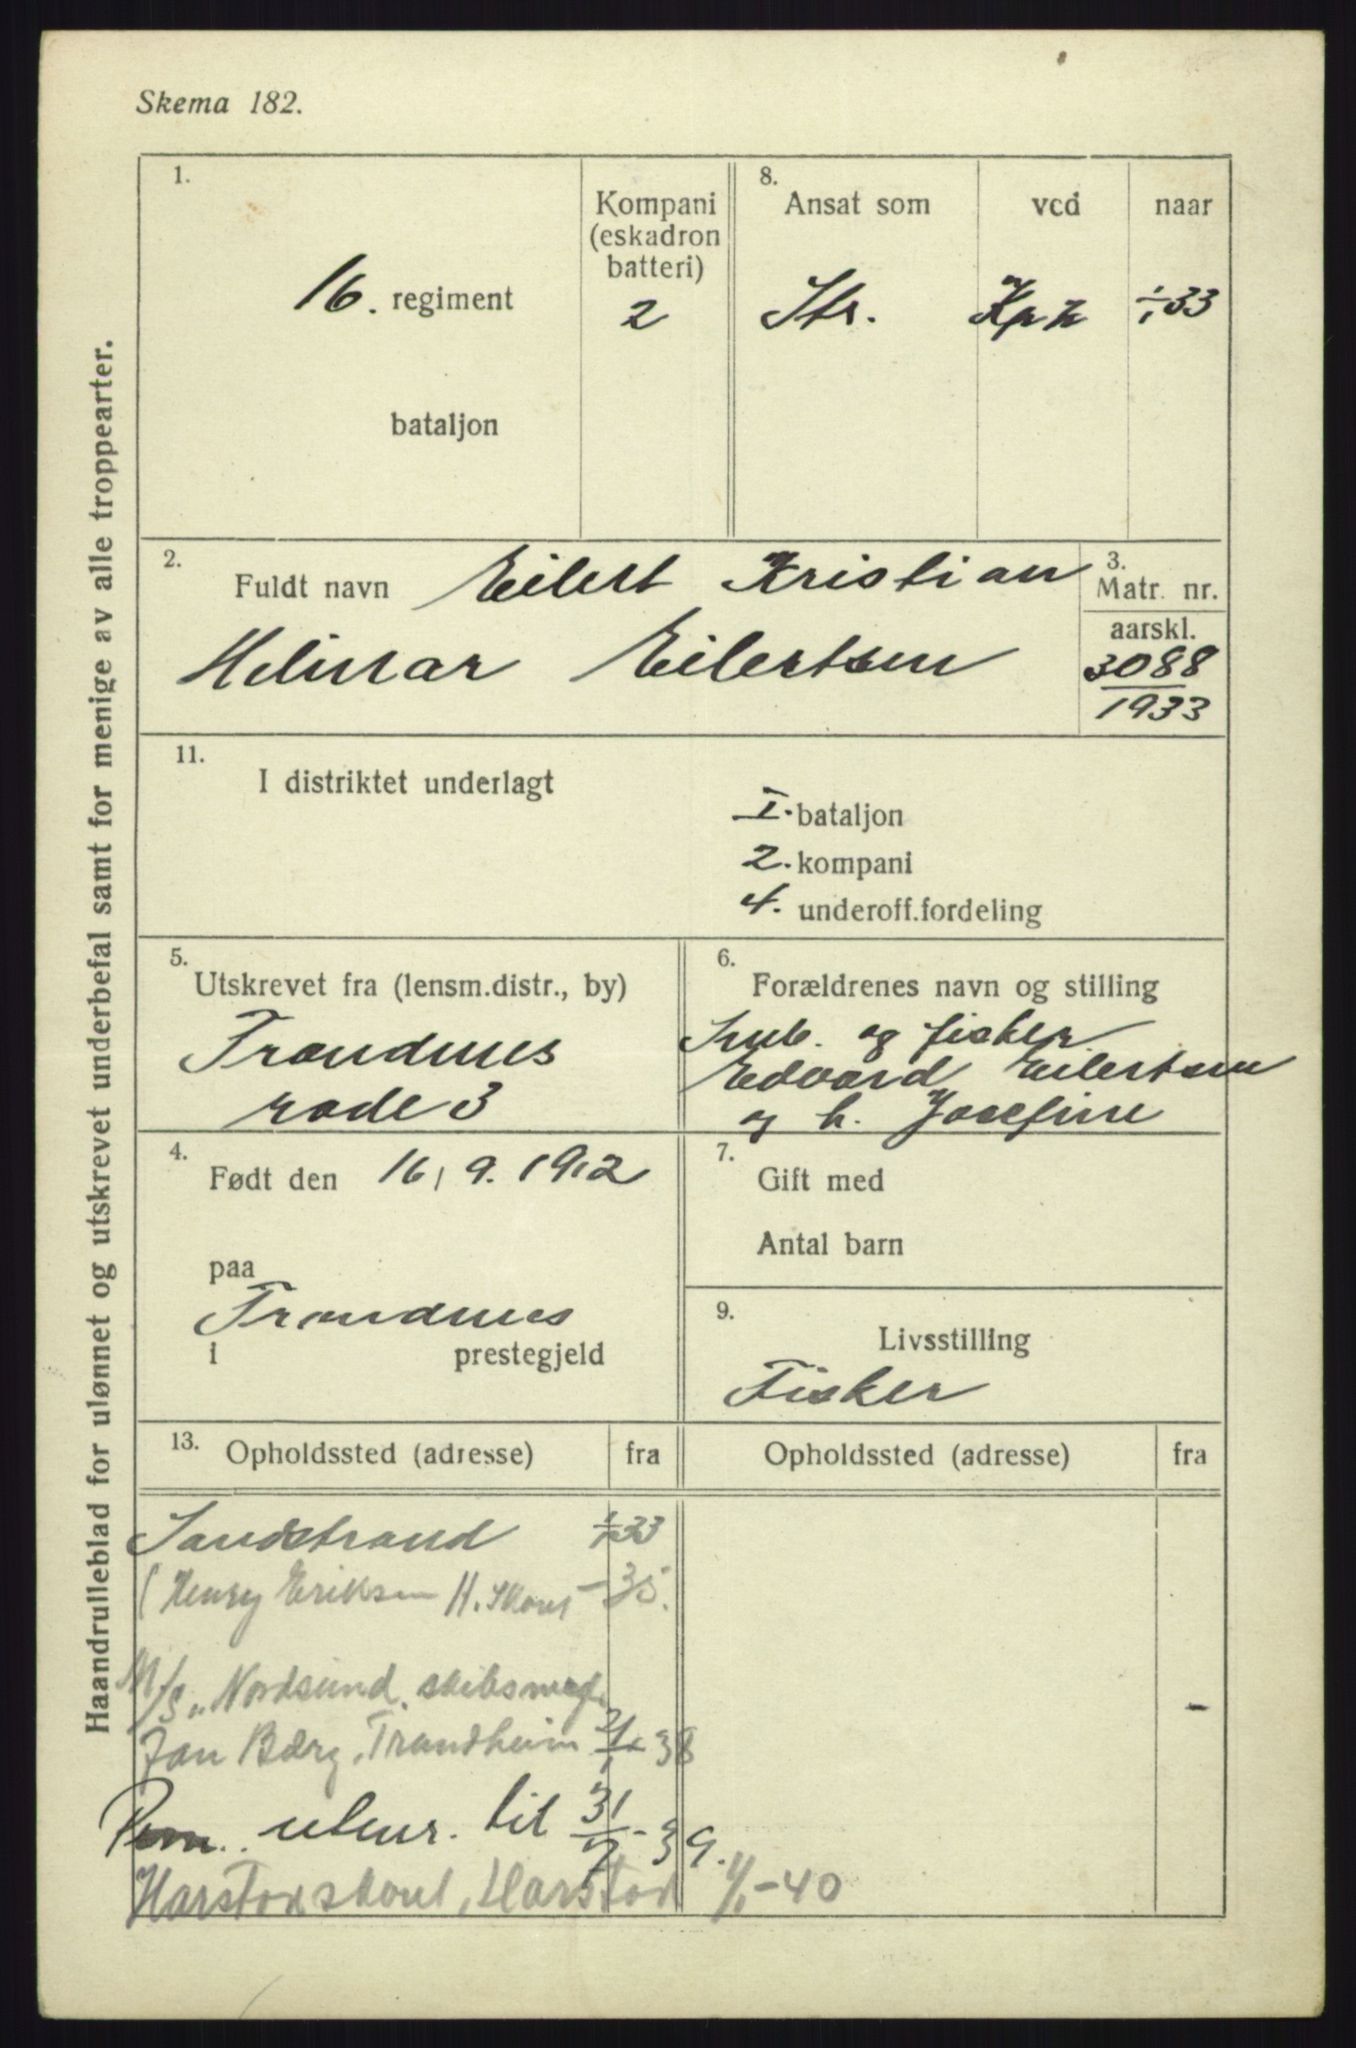 Skema 182.
Haandrulleblad for ulønnet og utskrevet underbefal samt for menige av alle troppearter.
1.
16. regiment
bataljon
Kompani
(eskadron
batteri)
2
8.
Ansat som
ved
naar
Str.
Kp 2
1/1 33
2.
Fuldt navn Eilert Kristian
Helmar Eilertsen
3.
Matr. nr.
aarskl.
3088
1933
11.
I distriktet underlagt
I. bataljon
2. kompani
4. underoff.fordeling
5.
Utskrevet fra (lensm.distr., by)
Trondenes
rode 3
6.
Forældrenes navn og stilling
Smb. og fisker
Edvard Eilertsen
og h. Josefine
4.
Født den 16/9. 1912
paa
Trondenes
i prestegjeld
7.
Gift med
Antal barn
9.
Livsstilling
Fisker
13.
Opholdssted (adresse)
fra
Opholdssted (adresse)
fra
Sandstrand 1/1 33
(Henry Eriksen H. - 35.
M/S "Nordsund"
Jan Berg, Trondheim - 38
utenr. til 31/7 - 39.
Harstad 1/1 - 40